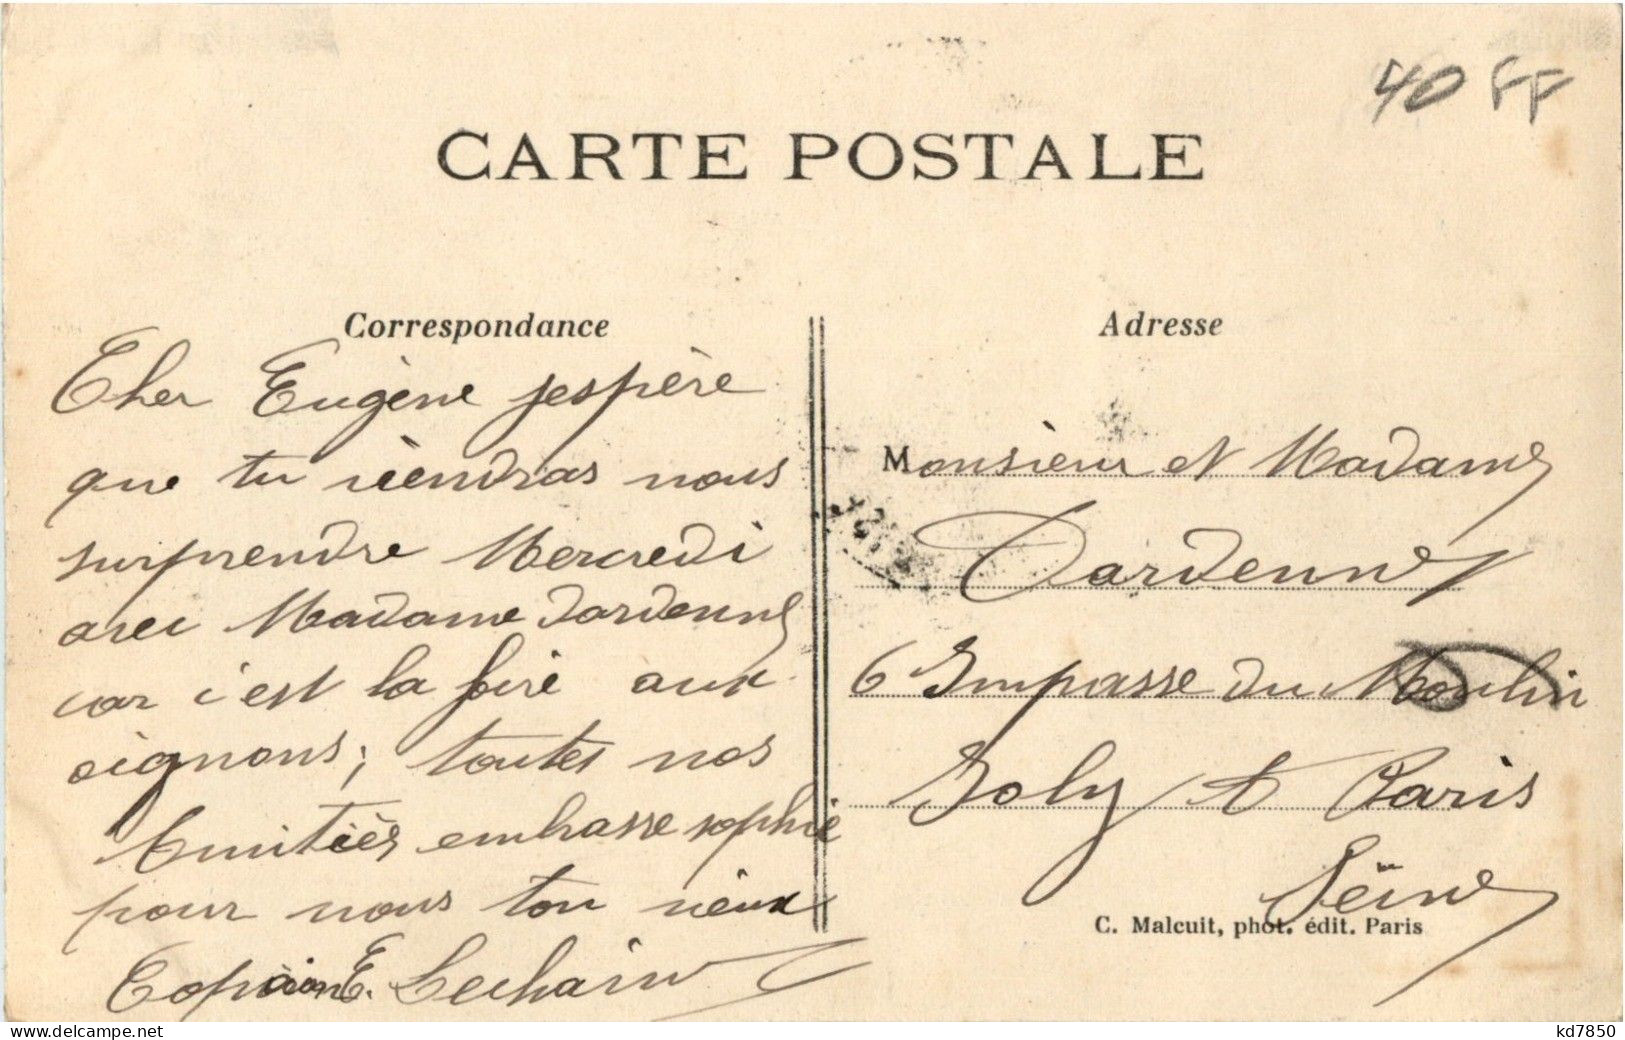 40 FF
CARTE POSTALE
Correspondance
Cher Eugène jespère
que tu viendras nous
surprendre Mercredi
avec Madame Dardenne
car c'est la foire aux
oignons; toutes nos
Amitiés embrasse sophie
pour nous ton vieux
Copain E. Lechain
Adresse
Monsieur et Madame
Dardenne
6 Impasse du Moulin
Joly à Paris
Seine
C. Malcuit, phot. édit. Paris
www.delcampe.net
kd7850